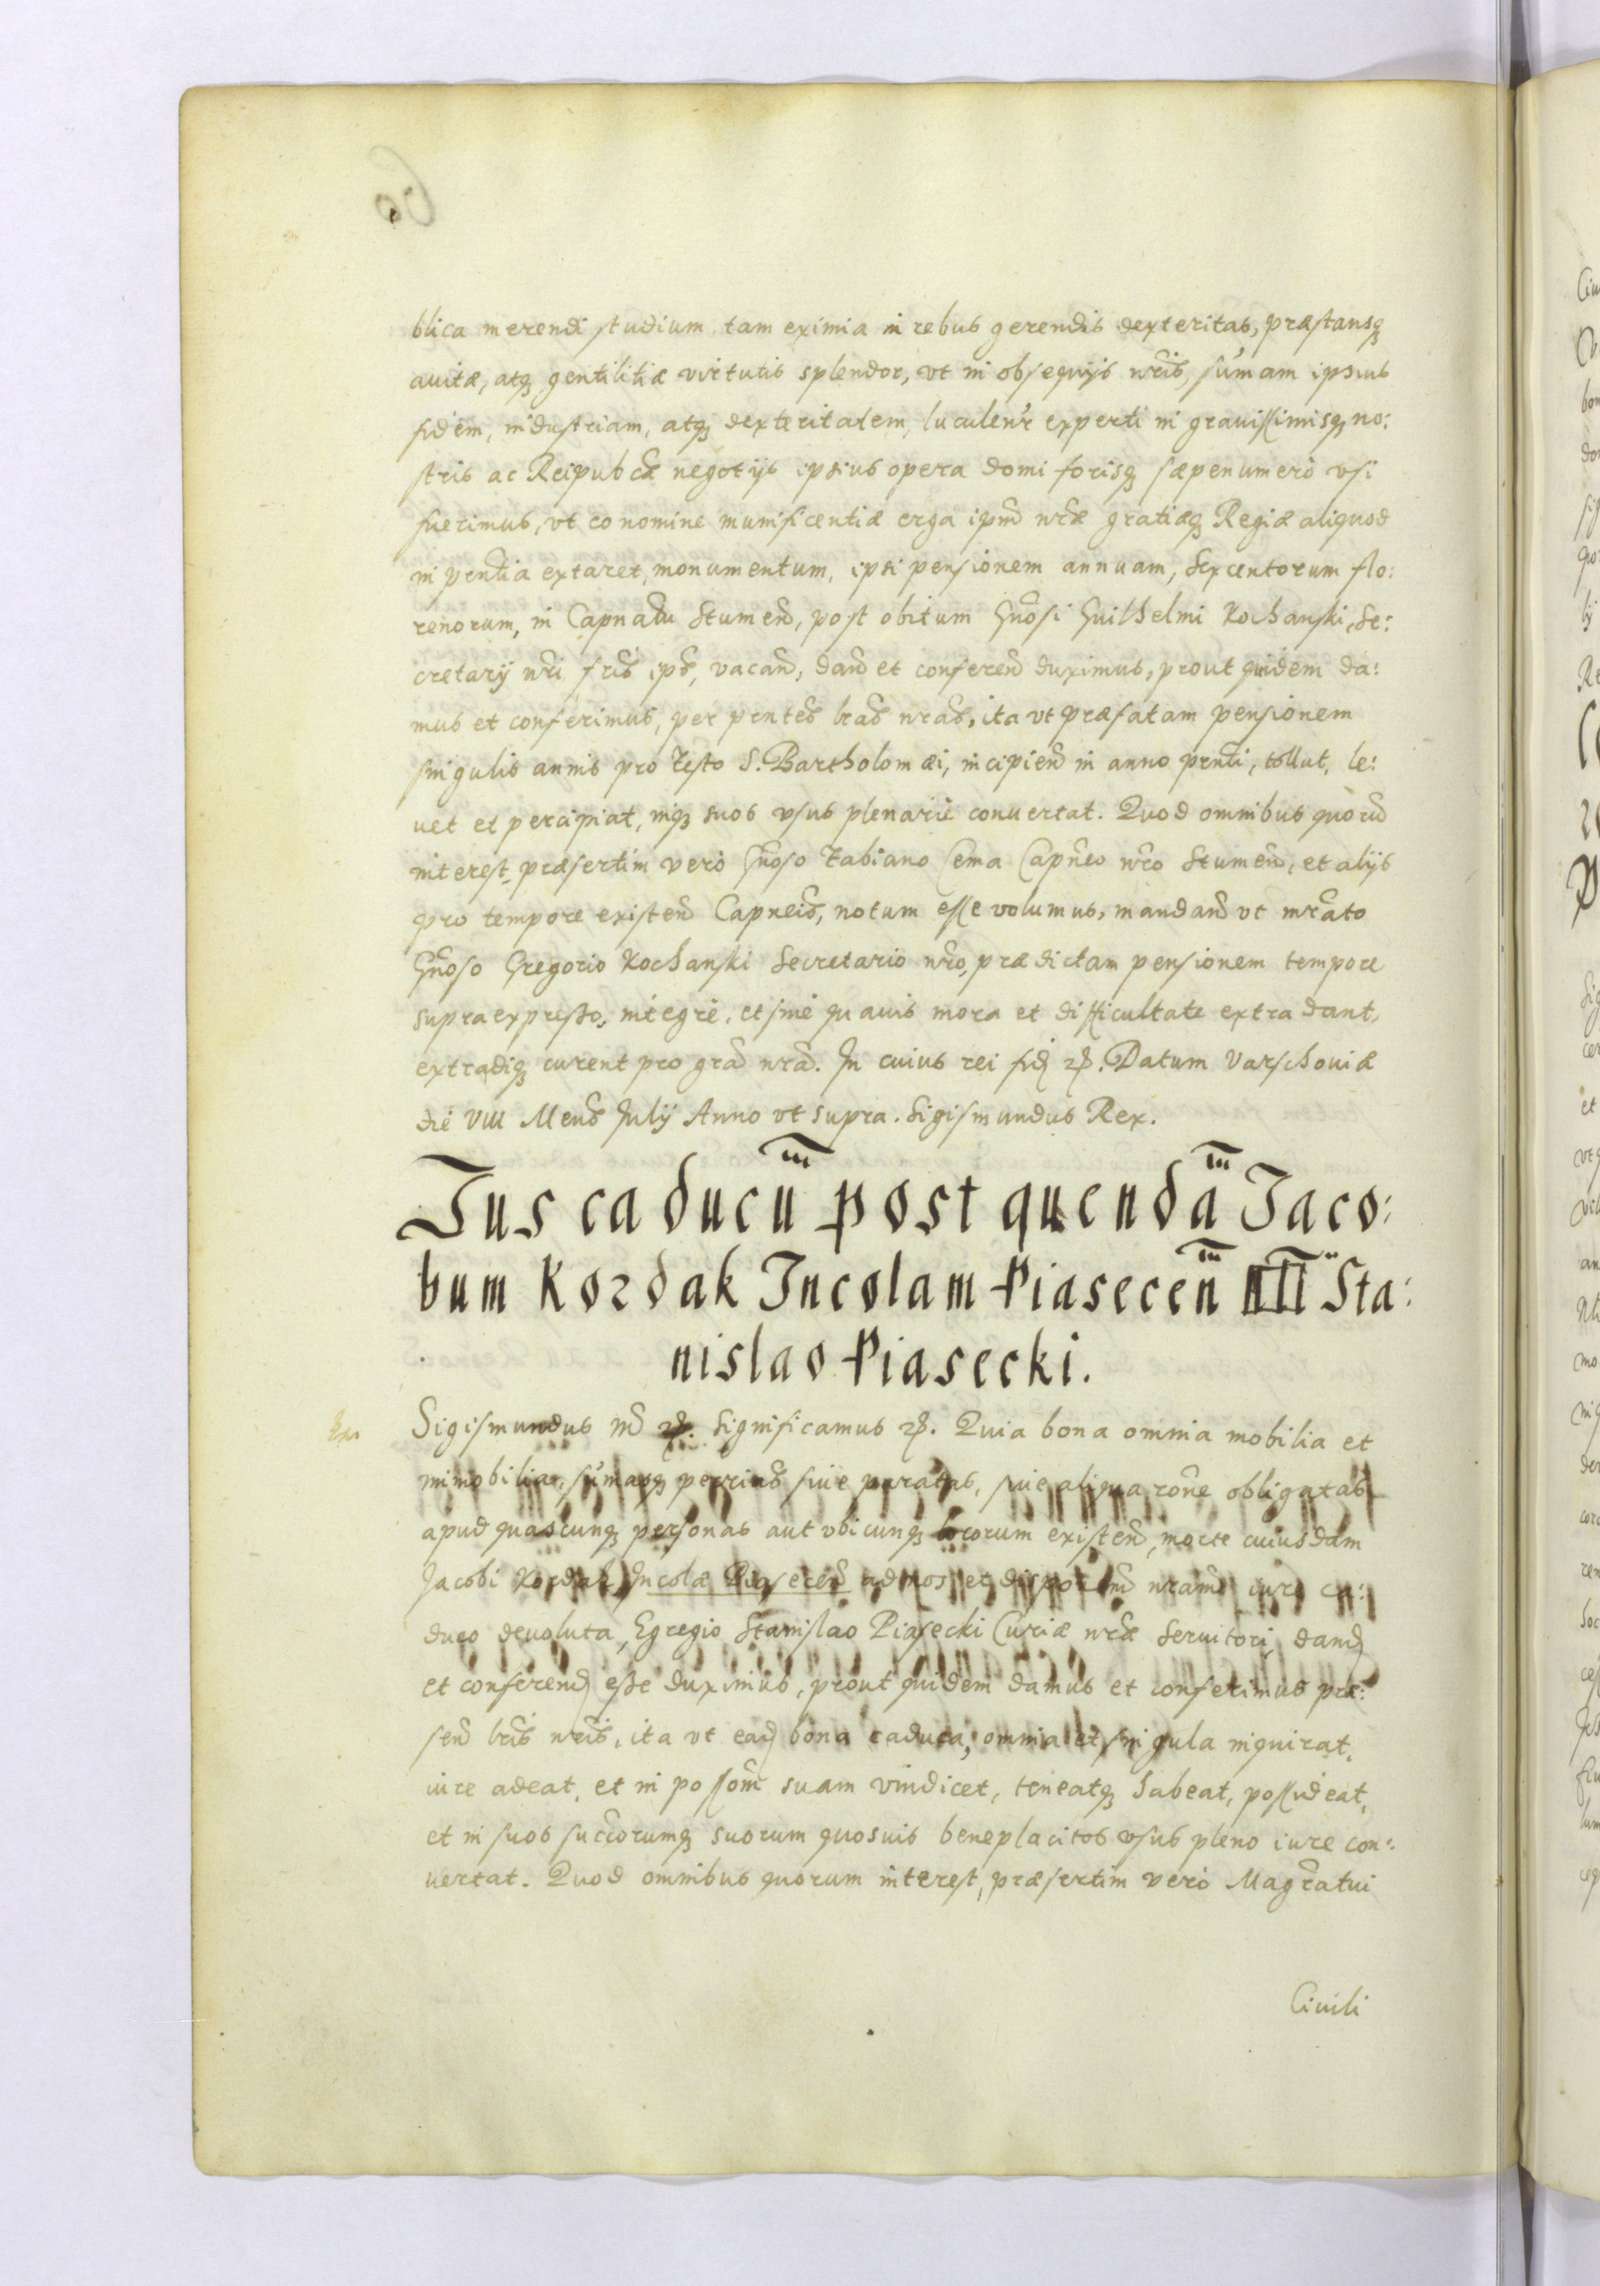 blica merendi studium tam eximia in rebus gerendis dexteritas, præstansq₃
auitæ, atq₃ gentilitiæ virtutis splendor, vt in obsequijs nr̃is, sum̃am ipsius
fidem, industriam, atq₃ dexteritatem, luculent̃r experti in grauissimisq₃ no:
stris ac Reipubcæ negotijs ipsius opera domi forisq₃ sæpenumerò vsi
fuerimus, vt eo nomine munificentiæ erga ipm̃ nr̃æ gratiæq₃ Regiæ aliquod
in pr̃ntia extaret, monumentum, ipsi pensionem annuam, sexcentorum flo:
renorum, in Capnatu Stumen̄, post obitum Gñosi Guilhelmi Kochanski, Se:
cretarij nr̃i fr̃is ips̃, vacan̄, dan̄ et conferen̄ duximus, prout quidem da:
mus et conferimus, per pr̃ntes lr̃as nr̃as, ita vt præfatam pensionem
singulis annis pro festo S. Bartholomæi, incipien̄ in anno pr̃nti, tollat, le:
uet et percipiat, inq₃ suos vsus plenariè conuertat. Quod omnibus quorũ
interest, præsertim verò Gñoso Fabiano Cema Capñeo nr̃o Stumen̄, et alijs
pro tempore existen̄ Capneis, notum esse volumus, mandan̄ vt mr̃ato
Gñoso Gregorio Kochanski Secretario nr̃o, prædictam pensionem tempore
supra expresso, integrè, et sine quauis mora et difficultate extradant,
extradiq₃ curent pro gr̃a nr̃a. In cuius rei fid₃ &. Datum Varschouiæ
die VIII Mens̃ Julij Anno vt supra. Sigismundus Rex.
Ius caducũ post quendã Iaco:
bum Kordak Incolam Piasecen̄ Sta:
nislao Piasecki.
Sigismundus 3ũs &. Significamus &. Quia bona omnia mobilia et
immobilia, sum̃asq₃ pecrias siue paratas, siue aliqua rõne obligatas
apud quascunq₃ personas aut vbicunq₃ locorum existen̄, morte cuiusdam
Jacobi Kordak Incolæ Piasecen̄ ad nos et dispoem̃ nram̃ iure ca:
duco deuoluta, Egregio Stanislao Piasecki Curiæ nr̃æ Seruitori, dand₃
et conferend₃ esse duximus, prout quidem damus et conferimus præ:
sen̄ lr̃is nr̃is, ita vt ead₃ bona caduca, omnia et singula inquirat,
iure adeat, et in possom̃ suam vindicet, teneatq₃ habeat, possideat,
et in suos succorumq₃ suorum quosuis beneplacitos vsus pleno iure con:
uertat. Quod omnibus quorum interest, præsertim verò Magr̃atui
Ciuili